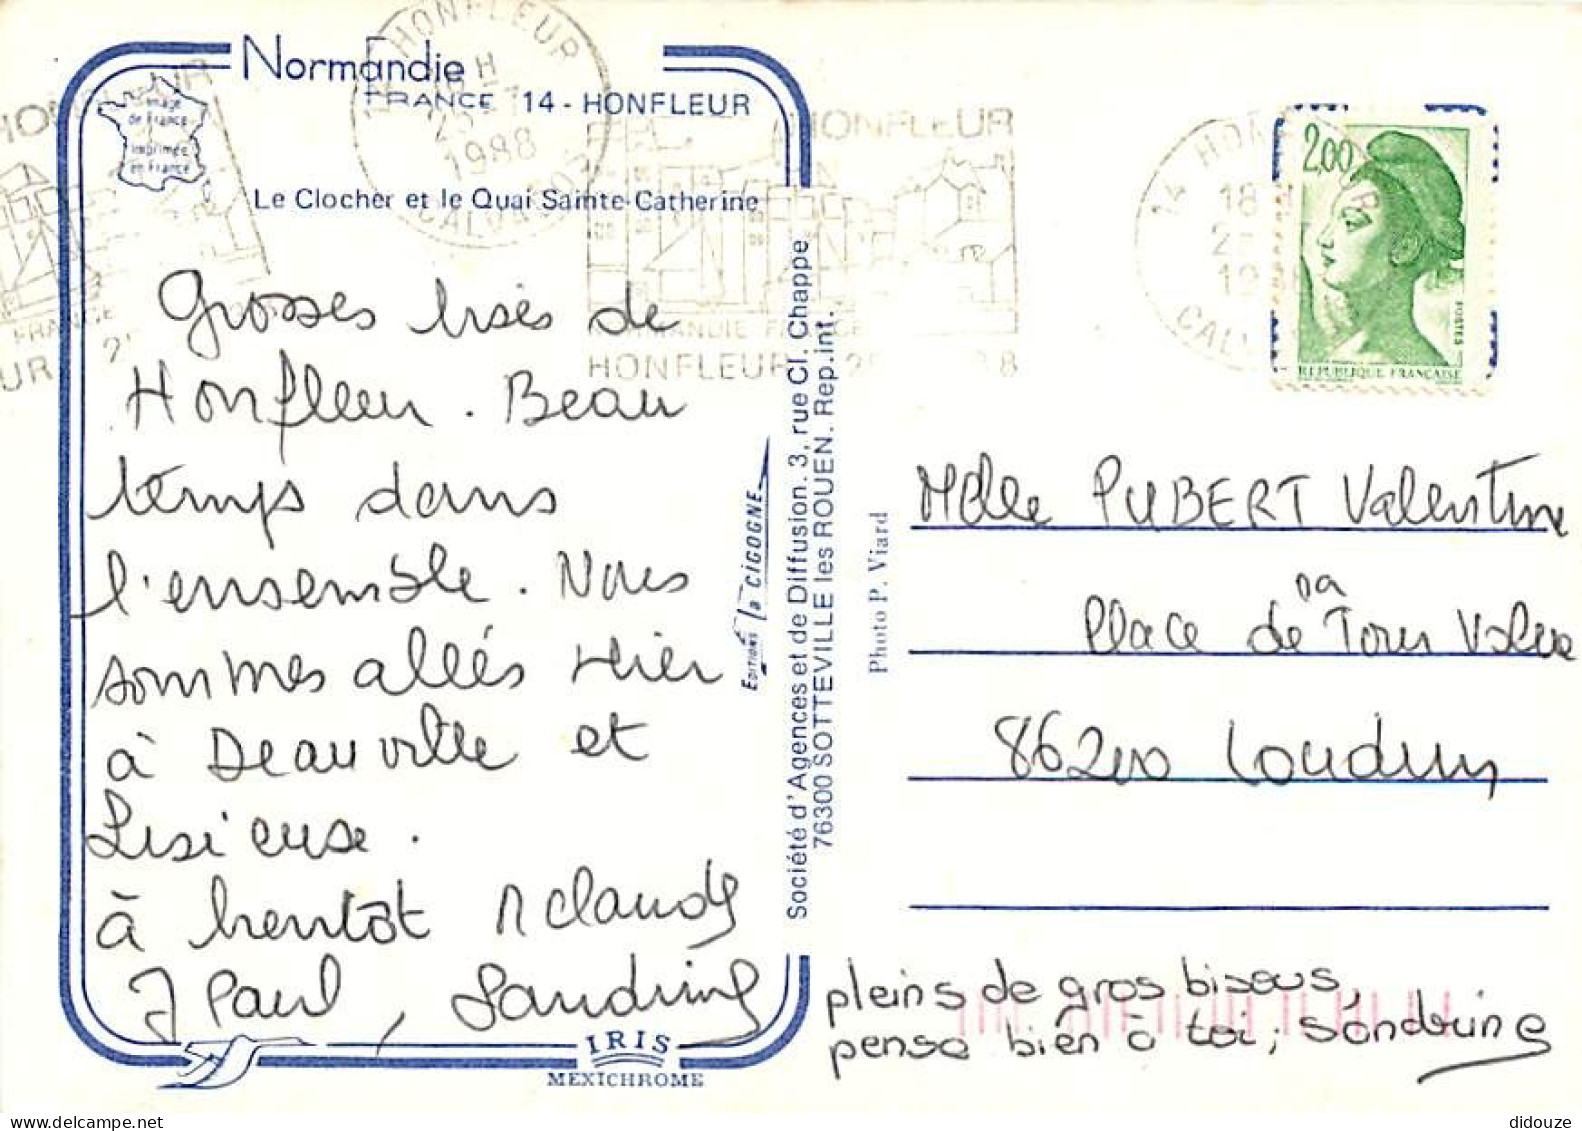 Normandie
FRANCE 14 - HONFLEUR
Image
de France
Imprimée
en France
Le Clocher et le Quai Sainte-Catherine
14 HONFLEUR
1988
CALVADOS
HONFLEUR
NORMANDIE FRANCE
HONFLEUR
14 HONFLEUR
18
CALVADOS
2,00
POSTES
REPUBLIQUE FRANÇAISE
Grosses bises de
Honfleur. Beau
temps dans
l'ensemble. Nous
sommes allés Hier
à Deauville et
Lisieuse.
à bientôt M claude
J Paul, Sandrine
EDITIONS la CIGOGNE
Société d'Agences et de Diffusion. 3, rue Cl. Chappe
76300 SOTTEVILLE les ROUEN. Rep.int.
Photo P. Viard
Melle PUBERT Valentine
Place de la Tour Volue
86200 Loudun
pleins de gros bisous,
pense bien à toi, Sandrine
IRIS
MEXICHROME
didouze